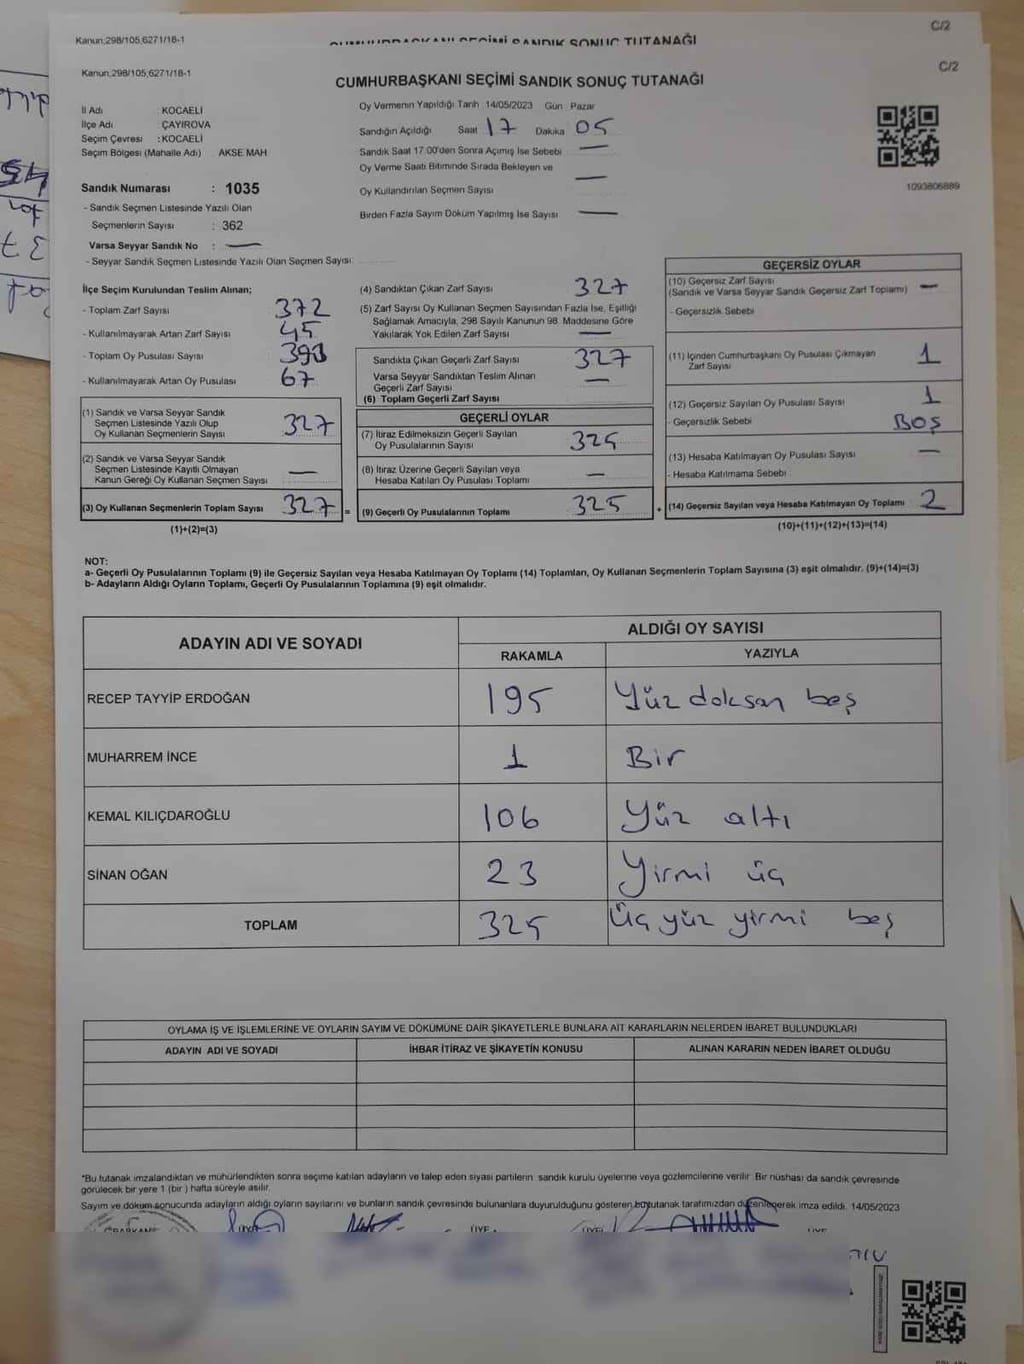 C/2
Kanun;298/105,6271/18-1
CUMHURBAŞKANI SEÇİMİ SANDIK SONUÇ TUTANAĞI
C/2
Kanun;298/105,6271/18-1
CUMHURBAŞKANI SEÇİMİ SANDIK SONUÇ TUTANAĞI
İl Adı : KOCAELİ
İlçe Adı : ÇAYIROVA
Seçim Çevresi : KOCAELİ
Seçim Bölgesi (Mahalle Adı) : AKSE MAH
Sandık Numarası : 1035
- Sandık Seçmen Listesinde Yazılı Olan
Seçmenlerin Sayısı : 362
Varsa Seyyar Sandık No : —
- Seyyar Sandık Seçmen Listesinde Yazılı Olan Seçmen Sayısı:
Oy Vermenin Yapıldığı Tarih 14/05/2023 Gün Pazar
Sandığın Açıldığı Saat 17 Dakika 05
Sandık Saat 17.00'den Sonra Açımış İse Sebebi —
Oy Verme Saati Bitiminde Sırada Bekleyen ve
Oy Kullandırılan Seçmen Sayısı —
Birden Fazla Sayım Döküm Yapılmış İse Sayısı —
1093806889
İlçe Seçim Kurulundan Teslim Alınan;
- Toplam Zarf Sayısı 372
- Kullanılmayarak Artan Zarf Sayısı 45
- Toplam Oy Pusulası Sayısı
- Kullanılmayarak Artan Oy Pusulası 67
(1) Sandık ve Varsa Seyyar Sandık
Seçmen Listesinde Yazılı Olup
Oy Kullanan Seçmenlerin Sayısı 327
(2) Sandık ve Varsa Seyyar Sandık
Seçmen Listesinde Kayıtlı Olmayan
Kanun Gereği Oy Kullanan Seçmen Sayısı —
(3) Oy Kullanan Seçmenlerin Toplam Sayısı 327 =
(1)+(2)=(3)
(4) Sandıktan Çıkan Zarf Sayısı 327
(5) Zarf Sayısı Oy Kullanan Seçmen Sayısından Fazla İse, Eşitliği
Sağlamak Amacıyla, 298 Sayılı Kanunun 98. Maddesine Göre
Yakılarak Yok Edilen Zarf Sayısı —
Sandıkta Çıkan Geçerli Zarf Sayısı 327
Varsa Seyyar Sandıktan Teslim Alınan
Geçerli Zarf Sayısı —
(6) Toplam Geçerli Zarf Sayısı
GEÇERLİ OYLAR
(7) İtiraz Edilmeksizin Geçerli Sayılan
Oy Pusulalarının Sayısı 325
(8) İtiraz Üzerine Geçerli Sayılan veya
Hesaba Katılan Oy Pusulası Toplamı —
(9) Geçerli Oy Pusulalarının Toplamı 325 +
GEÇERSİZ OYLAR
(10) Geçersiz Zarf Sayısı
(Sandık ve Varsa Seyyar Sandık Geçersiz Zarf Toplamı) —
- Geçersizlik Sebebi
(11) İçinden Cumhurbaşkanı Oy Pusulası Çıkmayan
Zarf Sayısı 1
(12) Geçersiz Sayılan Oy Pusulası Sayısı 1
- Geçersizlik Sebebi BOŞ
(13) Hesaba Katılmayan Oy Pusulası Sayısı —
- Hesaba Katılmama Sebebi :
(14) Geçersiz Sayılan veya Hesaba Katılmayan Oy Toplamı 2
(10)+(11)+(12)+(13)=(14)
NOT:
a- Geçerli Oy Pusulalarının Toplamı (9) ile Geçersiz Sayılan veya Hesaba Katılmayan Oy Toplamı (14) Toplamları, Oy Kullanan Seçmenlerin Toplam Sayısına (3) eşit olmalıdır. (9)+(14)=(3)
b- Adayların Aldığı Oyların Toplamı, Geçerli Oy Pusulalarının Toplamına (9) eşit olmalıdır.
ADAYIN ADI VE SOYADI ALDIĞI OY SAYISI
RAKAMLA YAZIYLA
RECEP TAYYİP ERDOĞAN 195 Yüz doksan beş
MUHARREM İNCE 1 Bir
KEMAL KILIÇDAROĞLU 106 Yüz altı
SİNAN OĞAN 23 Yirmi üç
TOPLAM 325 Üç yüz yirmi beş
OYLAMA İŞ VE İŞLEMLERİNE VE OYLARIN SAYIM VE DÖKÜMÜNE DAİR ŞİKAYETLERLE BUNLARA AİT KARARLARIN NELERDEN İBARET BULUNDUKLARI
ADAYIN ADI VE SOYADI İHBAR İTİRAZ VE ŞİKAYETİN KONUSU ALINAN KARARIN NEDEN İBARET OLDUĞU
*Bu tutanak imzalandıktan ve mühürlendikten sonra seçime katılan adayların ve talep eden siyasi partilerin sandık kurulu üyelerine veya gözlemcilerine verilir. Bir nüshası da sandık çevresinde
görülecek bir yere 1 (bir) hafta süreyle asılır.
Sayım ve döküm sonucunda adayların aldığı oyların sayılarını ve bunların sandık çevresinde bulunanlara duyurulduğunu gösteren bu tutanak tarafımızdan düzenlenerek imza edildi. 14/05/2023
BAŞKAN ÜYE ÜYE ÜYE ÜYE